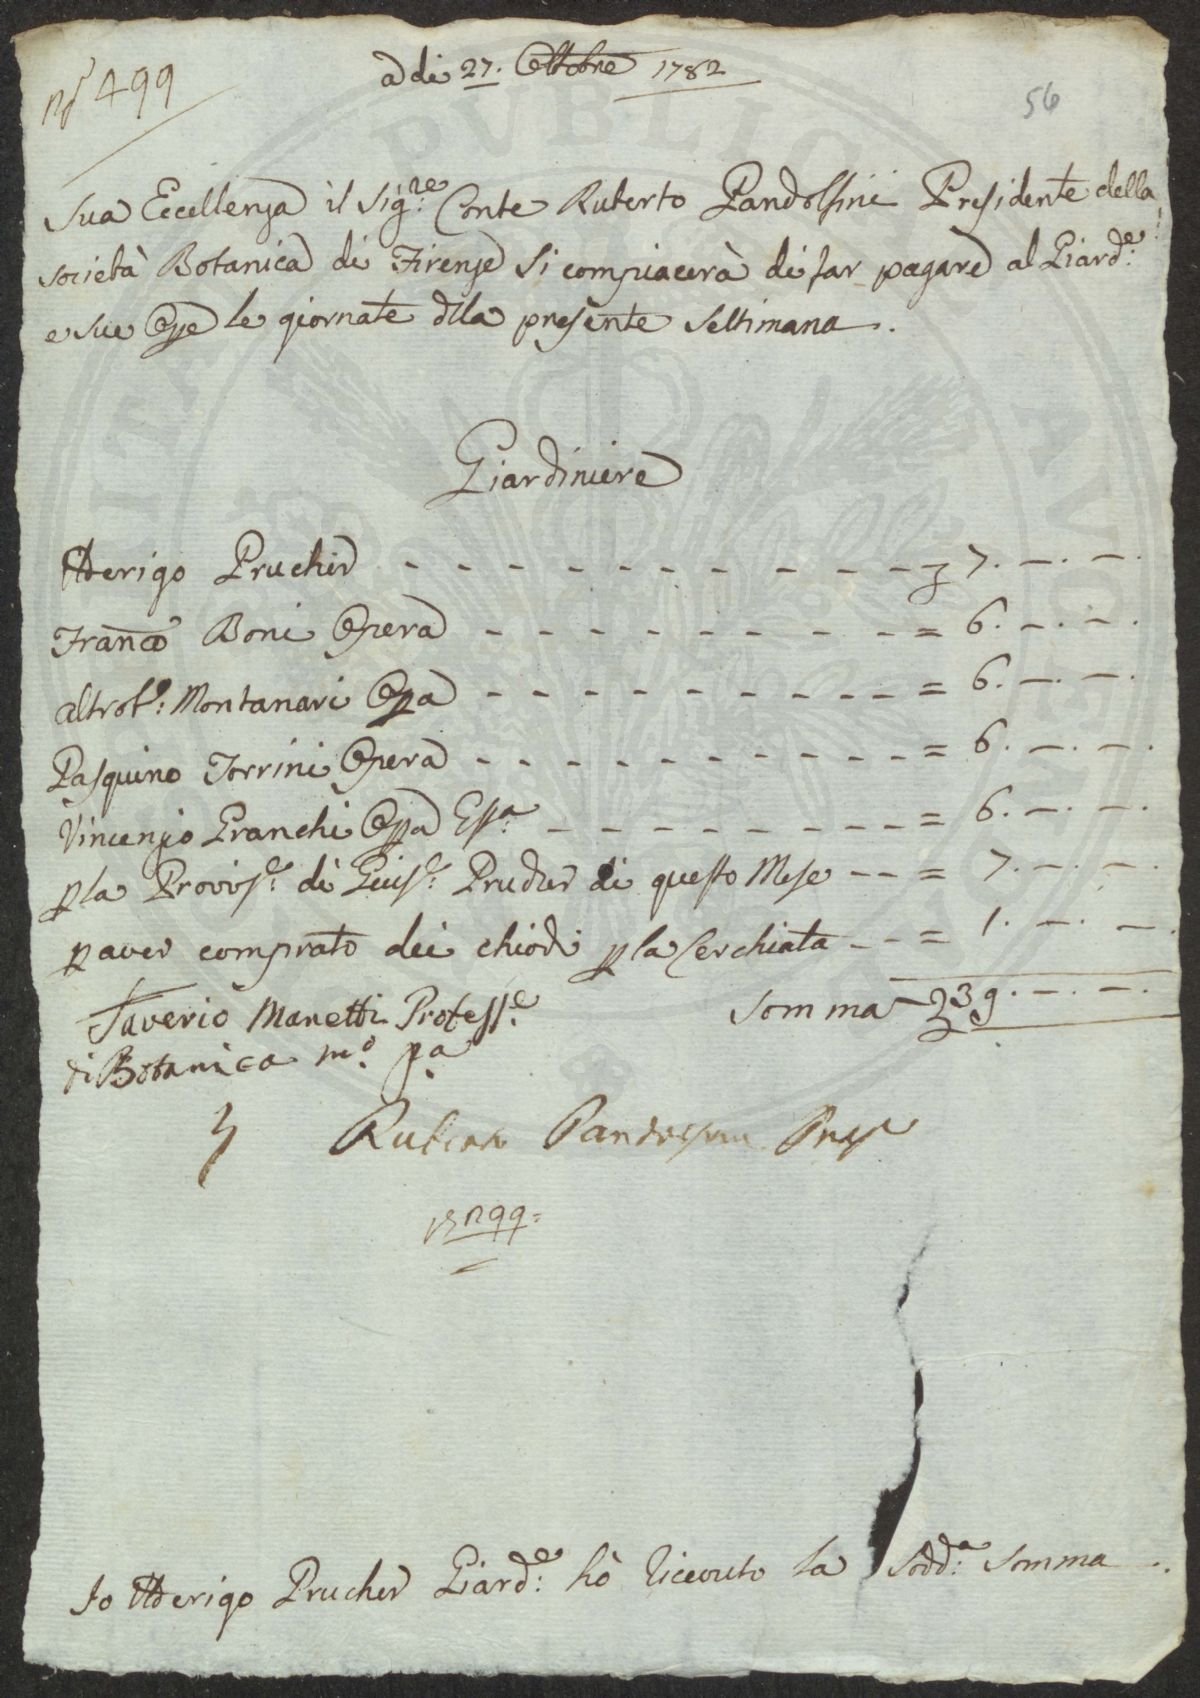 N.º 499
adi 27. Ottobre 1782
56
Sua Eccellenza il Sig.re Conte Ruberto Pandolfini Presidente della
società Botanica di Firenze si compiacerà di far pagare al Giard.e
e sue Opp.e le giornate dlla presente settimana.
Giardiniere
Arrigo Prucher - - - - - - - - - - - - 7. -. -.
Franco Boni Opera - - - - - - - - - = 6. -. -.
Montanari Oppa - - - - - - - - - = 6. -. -.
Pasquino Torrini Opera - - - - - - - - - = 6. -. -.
Vincenzio Franchi Oppa - - - - - - - - = 6. -. -.
p la Provvis.e di Gius.e Prucher di questo Mese - - = 7. -. -.
p aver comprato dei chiodi p la Cerchiata - - = 1. -. -.
Somma 39. -. -.
Saverio Manetti Profess.e
di Botanica m.o p.a
Ruberto Pandolfini Pres
Io Arrigo Prucher Giard.e hò riceuto la Sodd.a Somma.